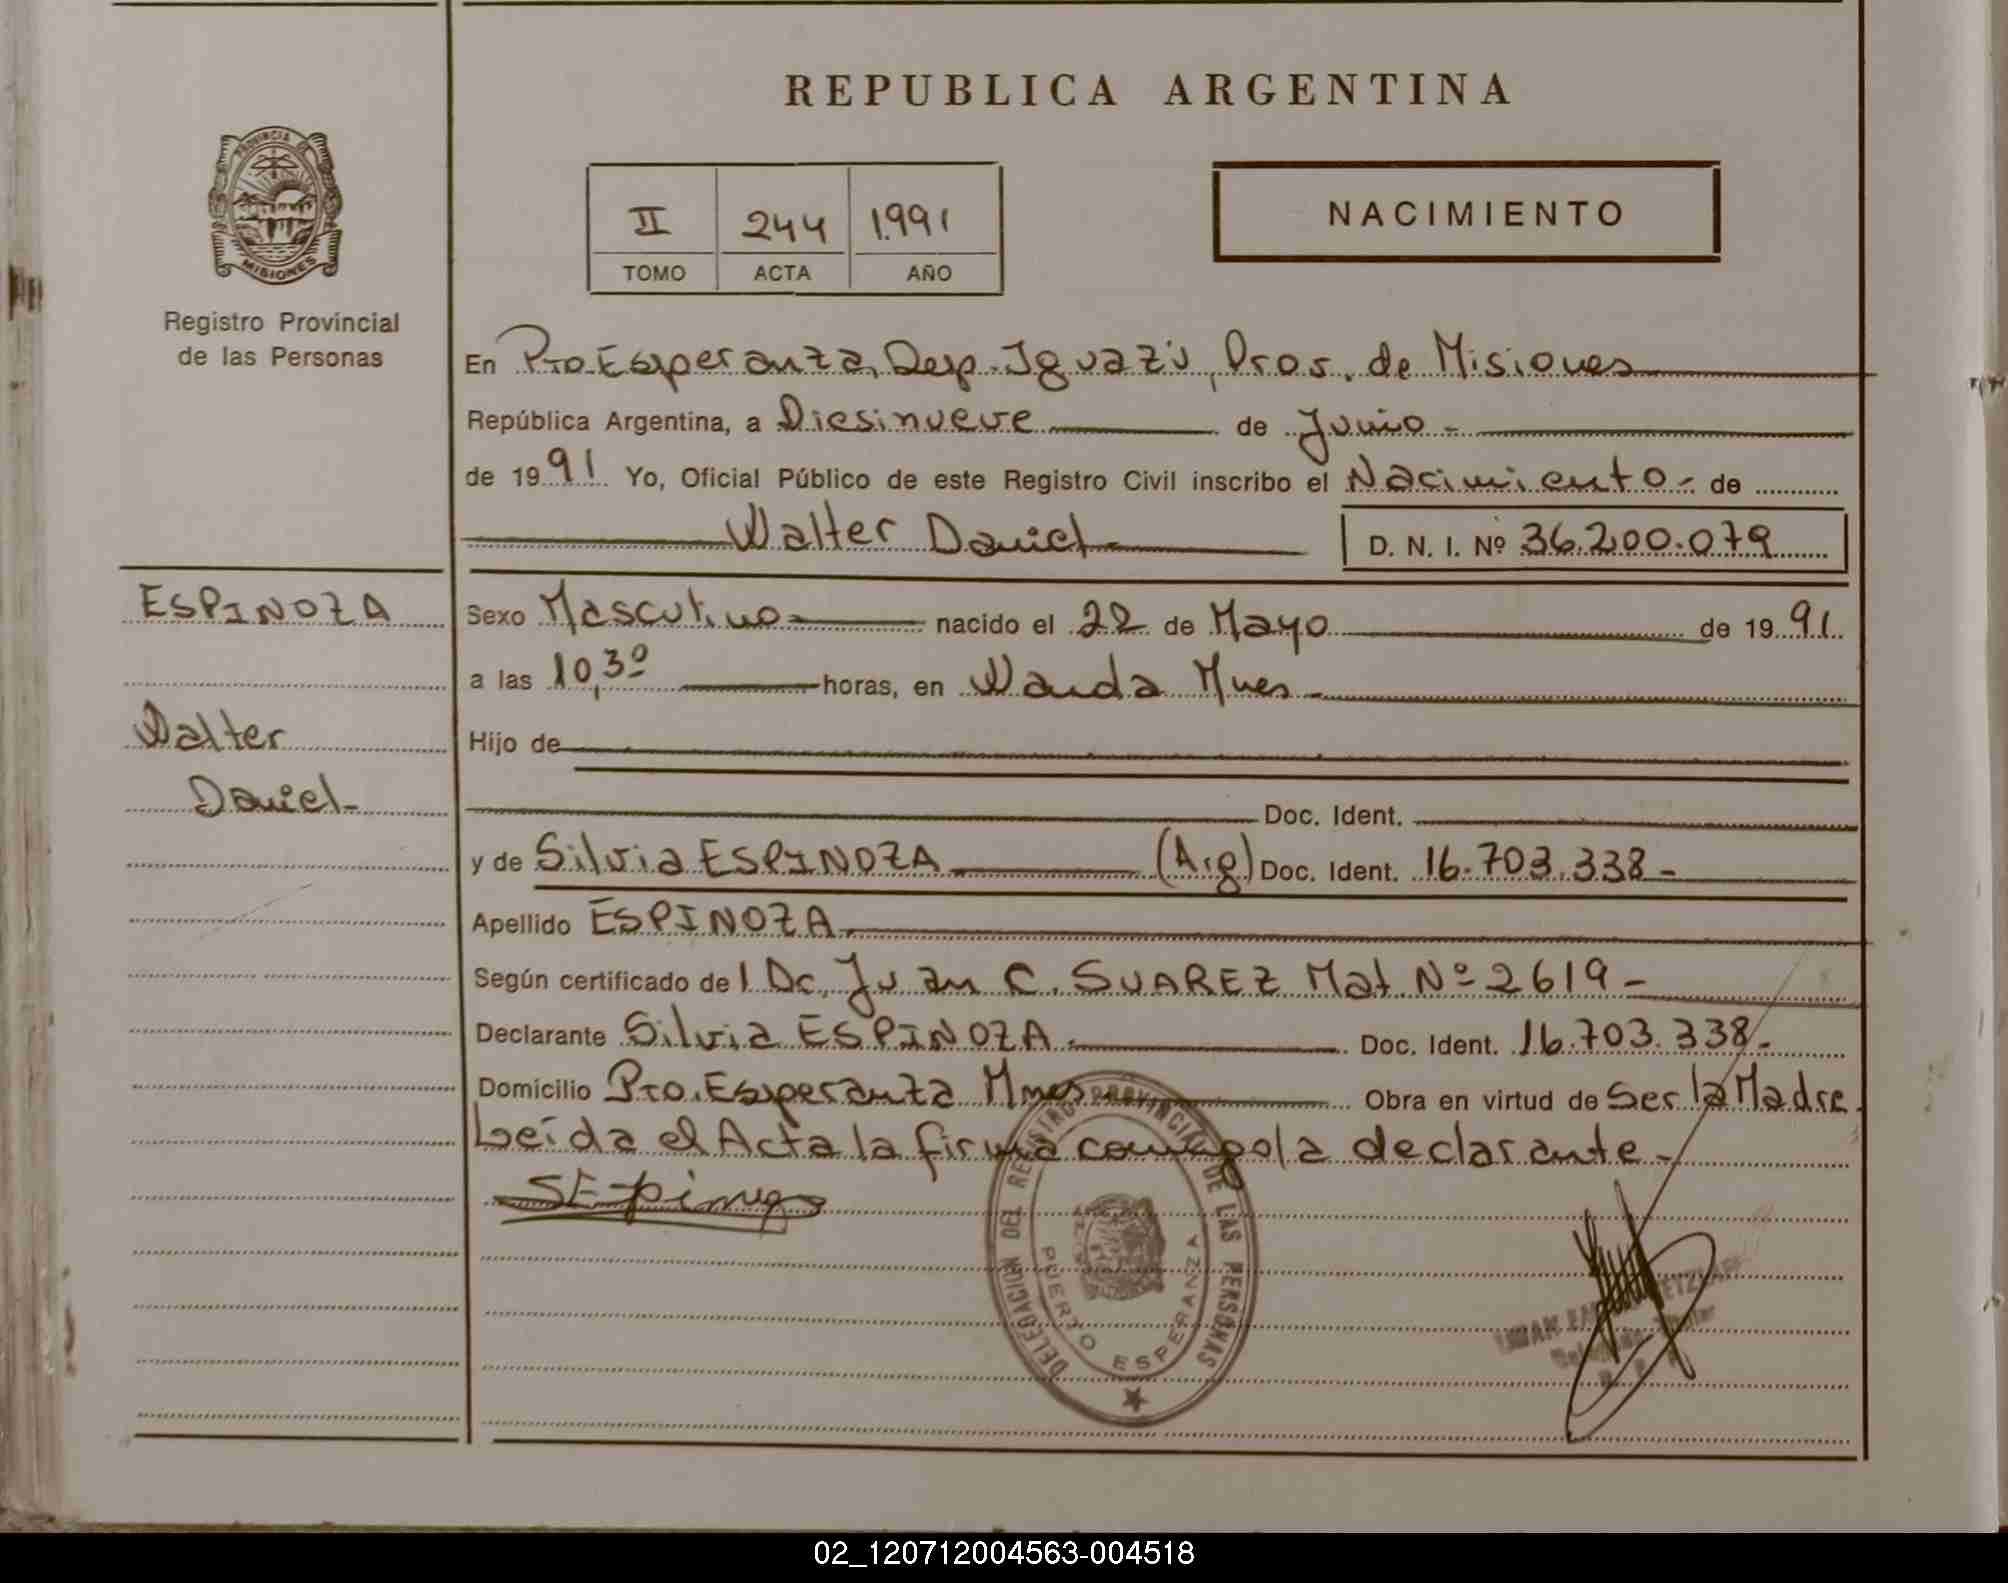 REPUBLICA ARGENTINA
PROVINCIA DE
MISIONES
Registro Provincial
de las Personas
II 244 1991
TOMO ACTA AÑO
NACIMIENTO
En Pto. Esperanza, Dep. Iguazú, Prov. de Misiones
República Argentina, a Diesinueve de Junio -
de 1991 Yo, Oficial Público de este Registro Civil inscribo el Nacimiento - de
Walter Daniel
D. N. I. Nº 36.200.079
ESPINOZA
Walter
Daniel -
Sexo Masculino nacido el 22 de Mayo de 1991.
a las 10,30 horas, en Wanda Mnes -
Hijo de
Doc. Ident.
y de Silvia ESPINOZA (Arg) Doc. Ident. 16.703.338 -
Apellido ESPINOZA
Según certificado del Dc. Juan C. SUAREZ Mat. Nº 2619 -
Declarante Silvia ESPINOZA. Doc. Ident. 16.703.338 -
Domicilio Pto. Esperanza Mnes Obra en virtud de Ser la Madre.
Leída el Acta la firma con la declarante -
SEspinoza
DELEGACION DEL REGISTRO PROVINCIAL DE LAS PERSONAS
PUERTO ESPERANZA
02_120712004563-004518